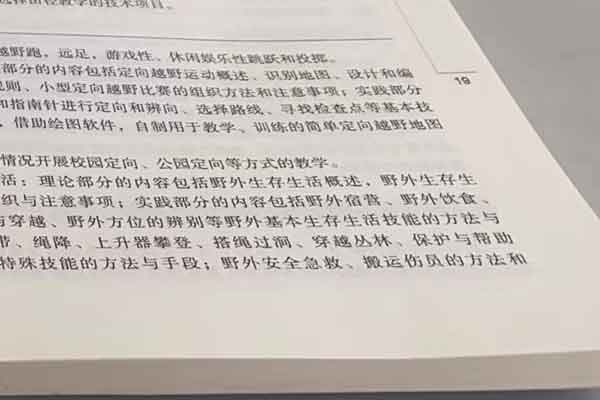 选择田径教学的技术项目。
越野跑，远足，游戏性、休闲娱乐性跳跃和投掷。
部分的内容包括定向越野运动概述、识别地图、设计和编
规则、小型定向越野比赛的组织方法和注意事项；实践部分
和指南针进行定向和辨向、选择路线、寻找检查点等基本技
，借助绘图软件，自制用于教学、训练的简单定向越野地图
情况开展校园定向、公园定向等方式的教学。
活：理论部分的内容包括野外生存生活概述，野外生存生
组织与注意事项；实践部分的内容包括野外宿营、野外饮食、
与穿越、野外方位的辨别等野外基本生存生活技能的方法与
带、绳降、上升器攀登、搭绳过涧、穿越丛林、保护与帮助
特殊技能的方法与手段；野外安全急救、搬运伤员的方法和
19